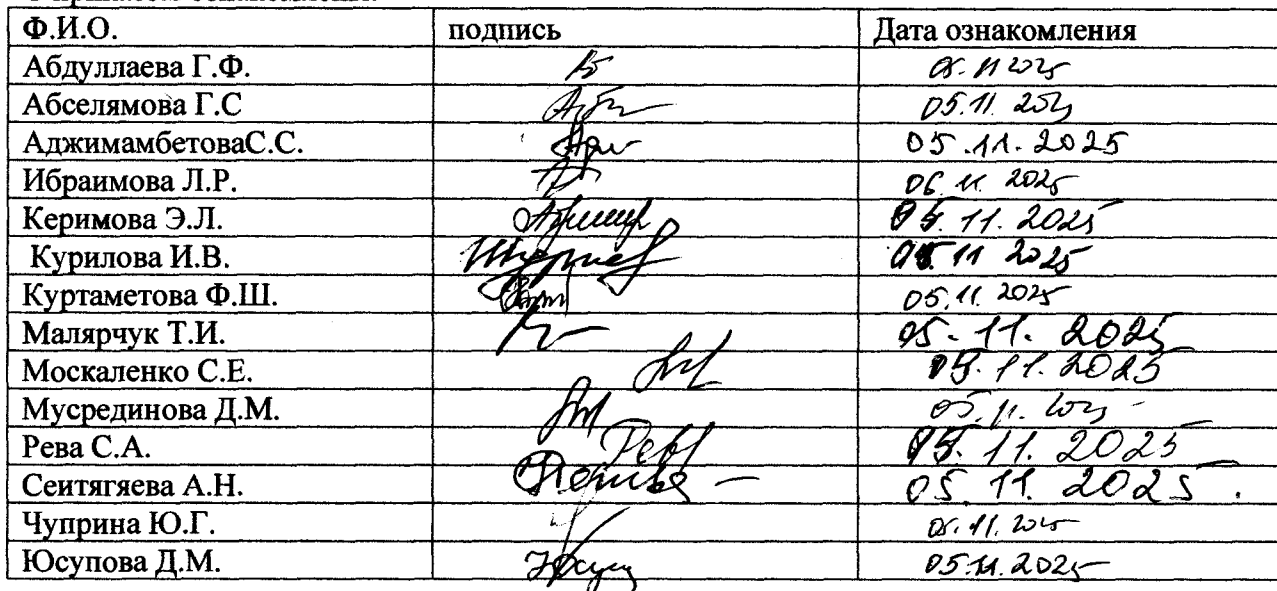 Ф.И.О. подпись Дата ознакомления
Абдуллаева Г.Ф. 05.11 2025
Абселямова Г.С 05.11. 2025
АджимамбетоваС.С. 05.11.2025
Ибраимова Л.Р. 06.11. 2025
Керимова Э.Л. 05.11.2025
Курилова И.В. 05.11 2025
Куртаметова Ф.Ш. 05.11.2025
Малярчук Т.И. 05.11.2025
Москаленко С.Е. 05.11.2025
Мусрединова Д.М. 05.11.2025
Рева С.А. 05.11.2025
Сеитягяева А.Н. 05.11.2025.
Чуприна Ю.Г. 05.11.2025
Юсупова Д.М. 05.11.2025